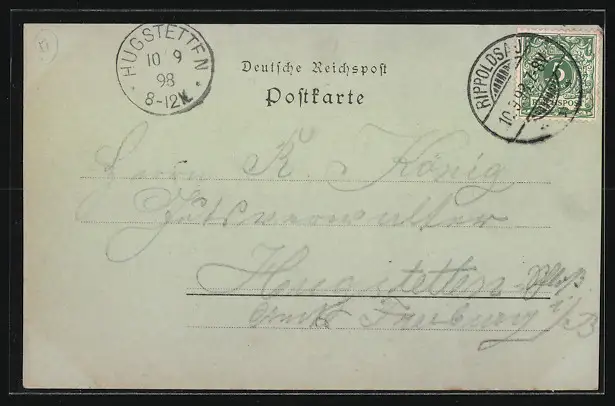 HUGSTETTEN
10 9
98
8-12V.
Deutsche Reichspost
Postkarte
RIPPOLDSAU
10.9.98.7-8V.
5
REICHSPOST
Herrn R. König
Gutsverwalter
Hugstetten Schloß
Freiburg i/B